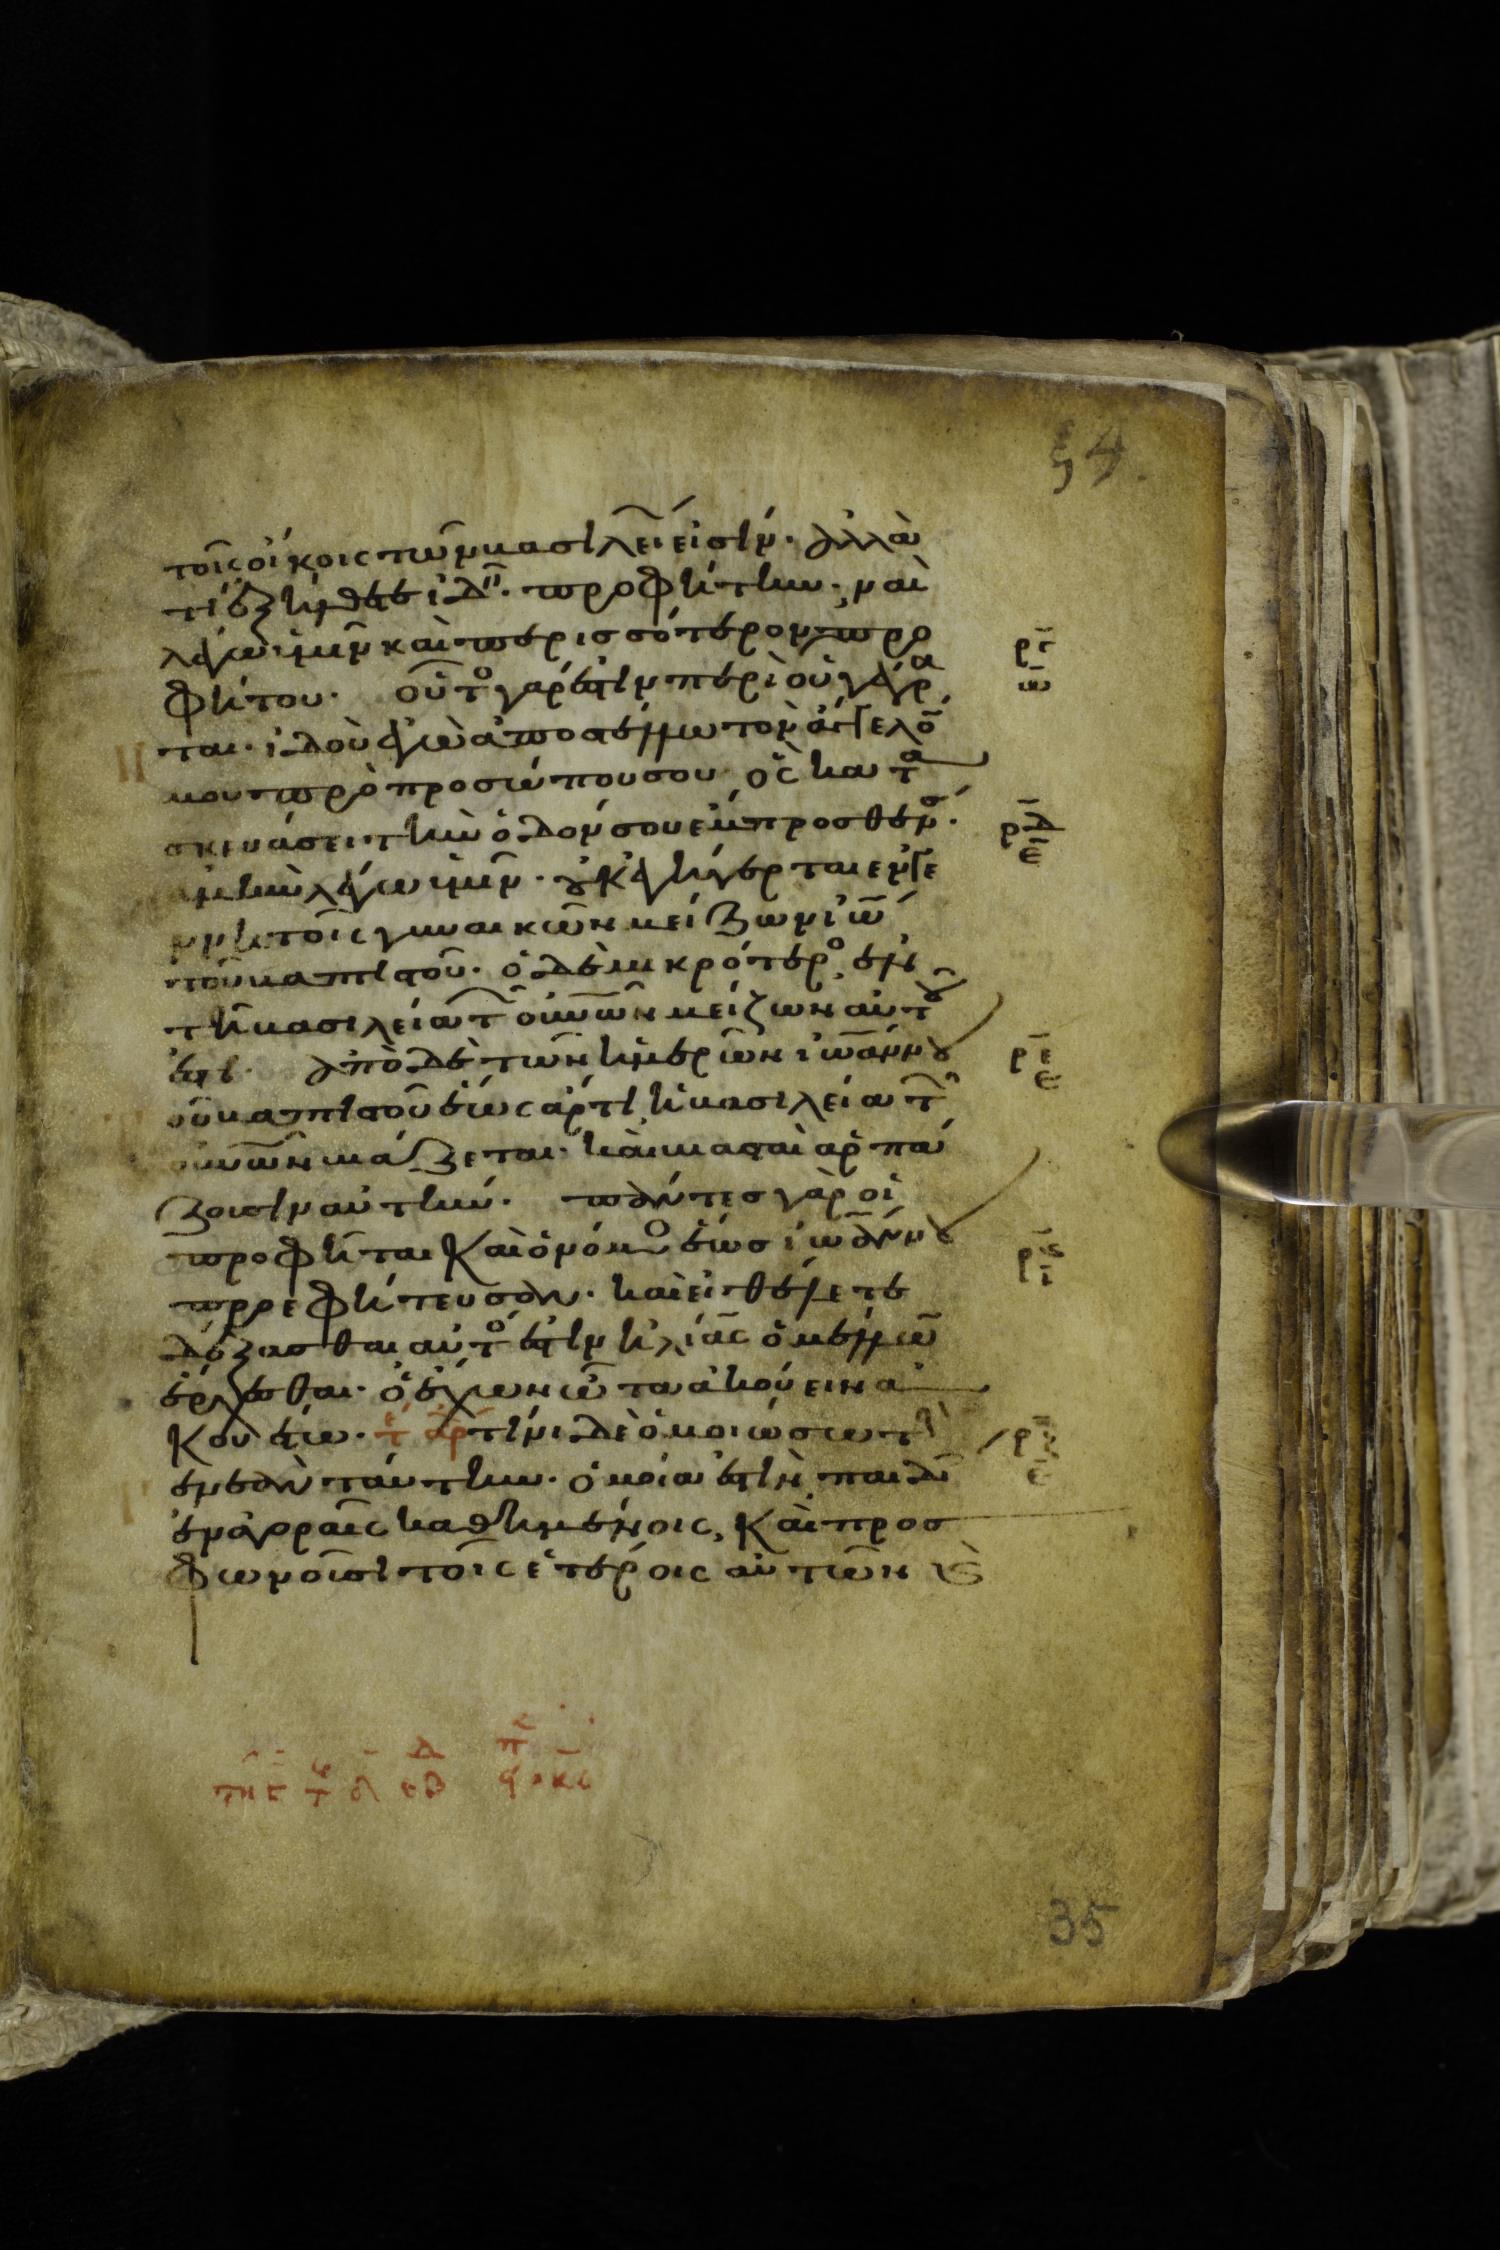 54
τοῖς οἴκοις τῶν βασιλεί εἰσίν· ἀλλὰ
τί ἐξήλθετε ἰδ῀· προφήτην· ναὶ
λέγω ὑμῖν καὶ περισσότερον προ
φήτου· οὗτο γάρ ἐστιν περὶ οὗ γέγρα
ται· ἰδοὺ ἐγὼ ἀποστέλλω τὸν ἄγγελό
μου πρὸ προσώπου σου ὃς κατα
σκευάσει τὴν ὁδόν σου ἔμπροσθέν σ·
ἀμὴν λέγω ὑμῖν· οὐκ ἐγήγερται ἐν γε
ννητοῖς γυναικῶν μείζων ἰω
τοῦ βαπτιστοῦ· ὁ δὲ μικρότερο ἐν
τῆ βασιλεία τ οὐνῶν μείζων αὐτοῦ
ἐστι· ἀπὸ δὲ τῶν ἡμερῶν ἰωάννου
τοῦ βαπτιστοῦ ἕως ἄρτι ἡ βασιλεία τ
οὐνῶν βιάζεται· καὶ βιασταὶ ἁρπά
ζουσιν αὐτήν· πάντες γὰρ οἱ
προφῆται καὶ ὁ νόμο ἕως ἰωάννου
προεφήτευσαν· καὶ εἰ θέλετε
δέξασθαι αὐτό ἐστιν ἠλίας ὁ μέλλω
ἔρχεσθαι· ὁ ἔχων ὦτα ἀκούειν ἀ
κουέτω· τίνι δὲ ὁμοιώσω τὴ
γενεὰν ταύτην· ὁμοία ἐστὶν παιδί
ἐν ἀγοραῖς καθημένοις, καὶ προσ
φωνοῦσι τοῖς ἑτέροις αὐτῶν
ργ
ρδ
ε
ρε
ε
ρς
ι
ρζ
ε
35